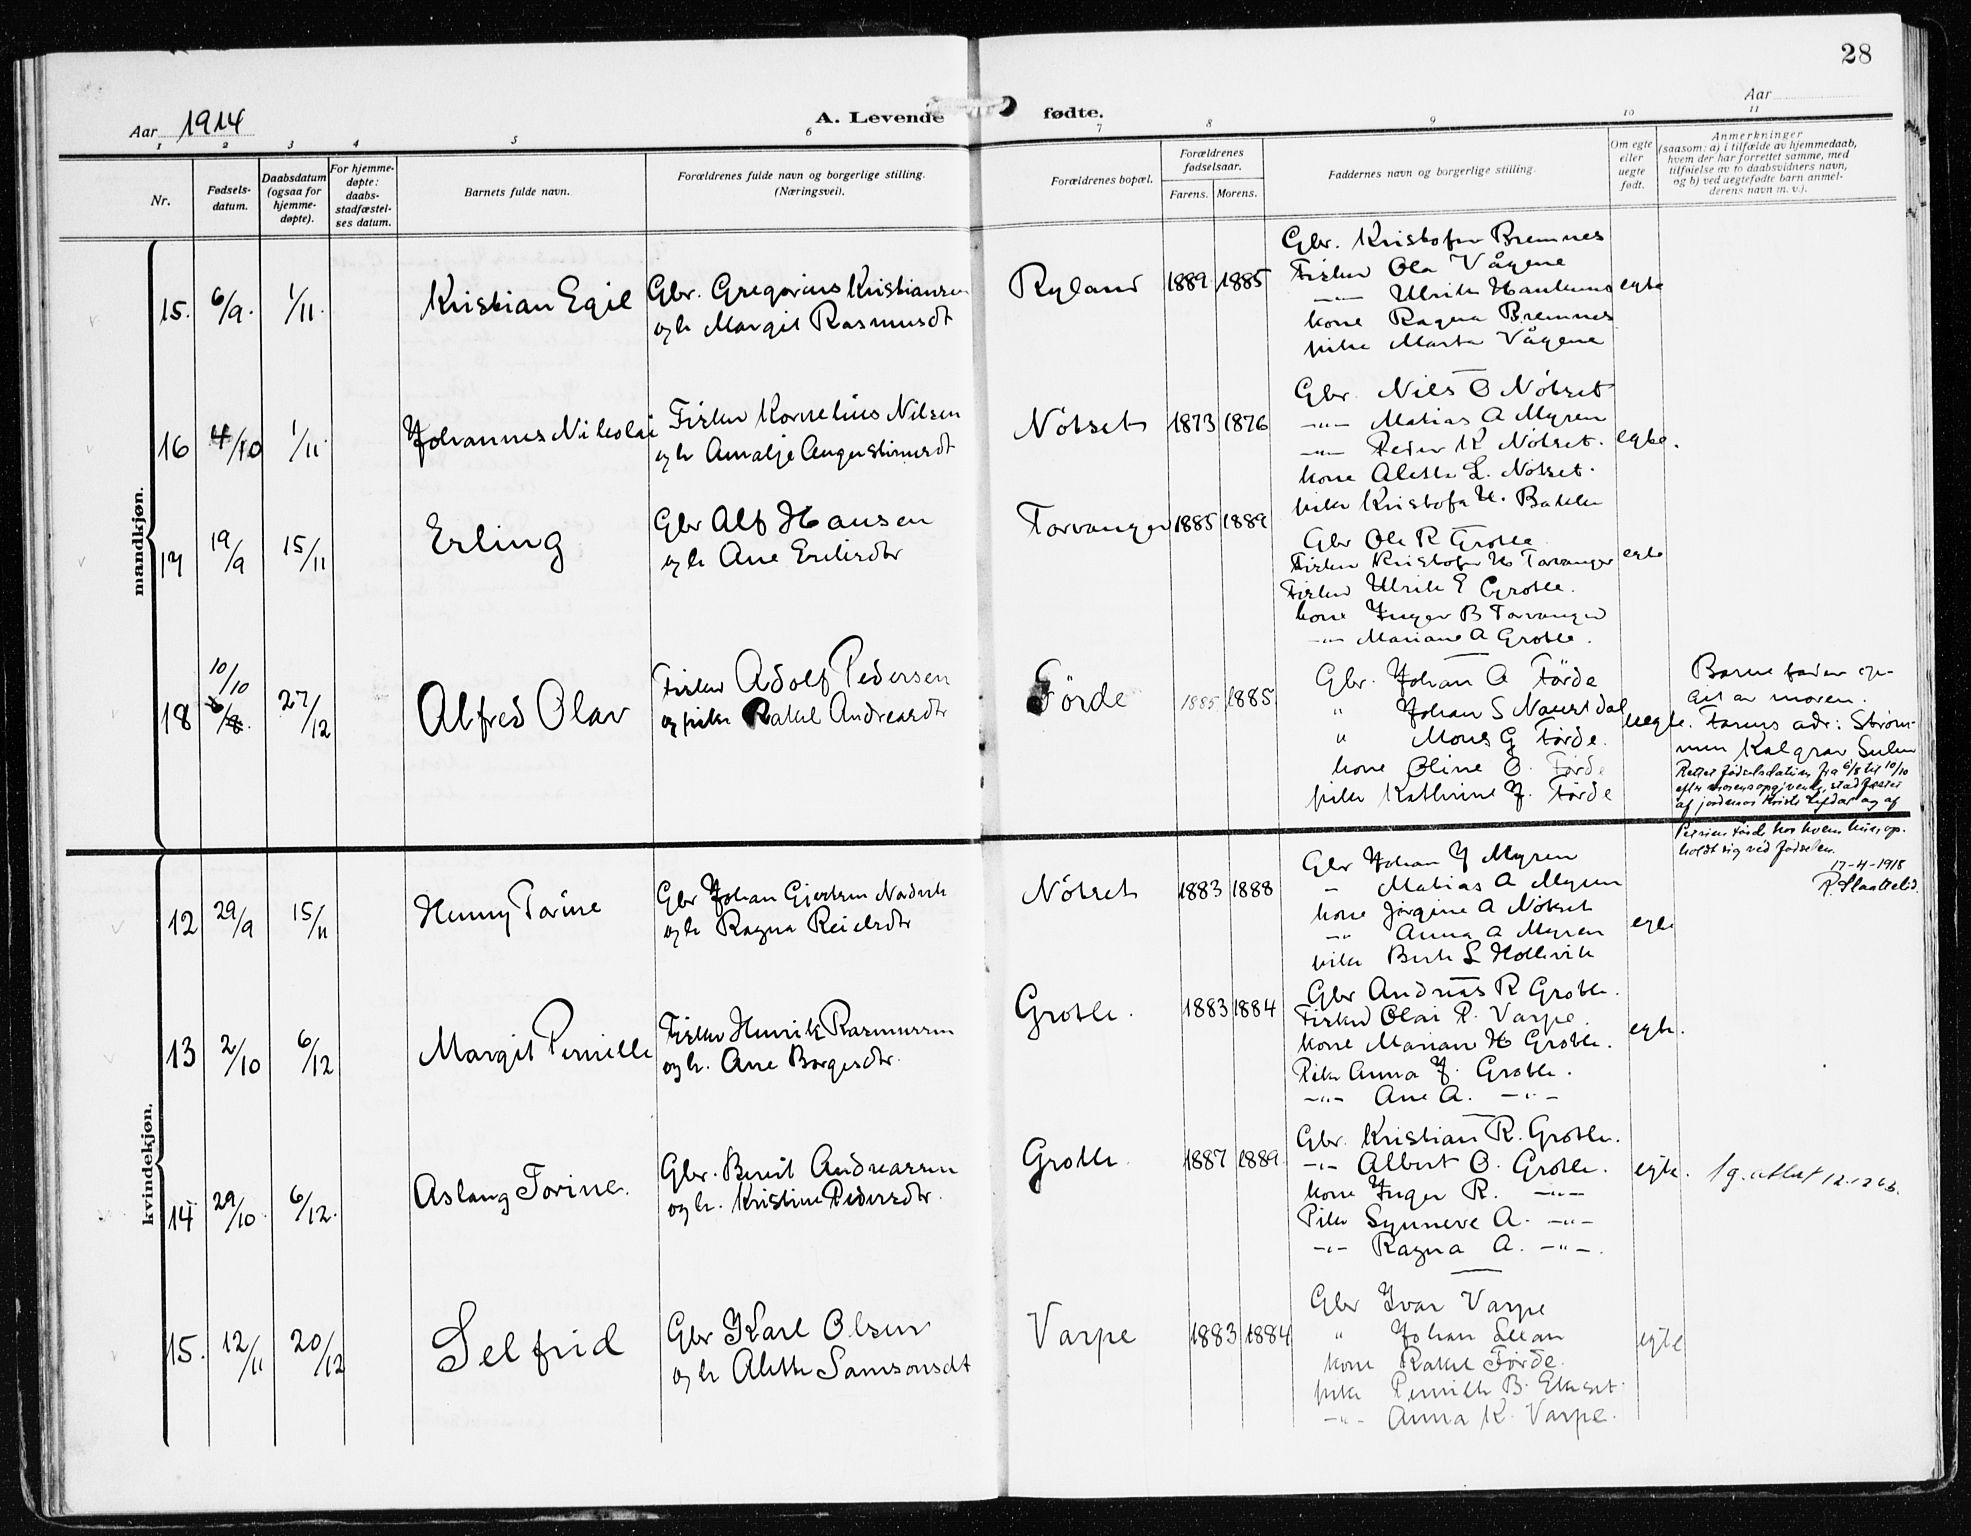 28
Aar 1914
A. Levende fødte.
Aar
1 2 3 4 5 6 7 8 9 10 11
Nr.
Fødsels-
datum.
Daabsdatum
(ogsaa for
hjemme-
døpte).
For hjemme-
døpte:
daabs-
stadfæstel-
ses datum.
Barnets fulde navn.
Forældrenes fulde navn og borgerlige stilling.
(Næringsvei).
Forældrenes bopæl.
Forældrenes
fødselsaar.
Farens. Morens.
Faddernes navn og borgerlige stilling.
Om egte
eller
uegte
født.
Anmerkninger
(saasom: a) i tilfælde av hjemmedaab,
hvem der har forrettet samme, med
tilføielse av to daabsvidners navn,
og b) ved uegtefødte barn anmel-
derens navn m. v.).
mandkjøn.
15. 6/9. 1/11. Kristian Egil
Gbr. Gregorius Kristiansen
og h Margit Rasmusdt
Ryland 1889 1885
Gbr. Kristofer Bremnes
Fisker Ola Vågene
-"- Ulrik
kone Ragna Bremnes
pike Marta Vågene
egte
16 4/10 1/11 Johannes Nikolai
Fisker Kornelius Nilsen
og h Amalje Augustinusdt
Nötset 1873 1876
Gbr. Nils O Nötset
-"- Matias A Myren
-"- Peder K Nötset.
kone Alette L. Nötset.
pike Kristofa H. Bakke
egte.
17 19/9 15/11 Erling
Gbr Alf Hansen
og h Ane Eriksdtr
Torvanger 1885 1889
Gbr Ole R Grotle
Fisker Kristofer H Torvanger
Fisker Ulrik E Grotle.
kone Inger B Torvanger
-"- Mariane A Grotle.
egte
18 10/10 6/8. 27/12 Alfred Olav
Fisker Adolf Pedersen
og pike Rakel Andreasdtr
Förde 1885 1885
Gbr. Johan A Förde
" Johan S Naustdal
" Mons G Förde.
kone Oline O. Förde
pike Kathrine J. Förde
uegte.
Barnefader op-
git av moren.
Farens adr: Strøm-
men Kalgrav Sulen
Rettet fødselsdatum fra 6/8 til 10/10
efter morens opgivende, stadfæstet
af jordemor Kristi og af
Förde hos hvem hun op-
holdt sig ved fødselen.
17-4-1918
kvindekjøn.
12 29/9 15/11 Henny Torine
Gbr Johan Gjertsen Nordvik
og h Ragna Reiersdtr
Nötset 1883 1888
Gbr Johan J Myren
" Matias A Myren
kone Jörgine A Nötset
-"- Anna A Myren
pike Berte L Hollevik
egte
13 2/10 6/12 Margit Pernille
Fisker Henrik Rasmussen
og h. Ane Borgesdtr.
Grotle. 1883 1884
Gbr Andreas R Grotle.
Fisker Olai R. Varpe.
kone Marian H Grotle.
Pike Anna J. Grotle.
-"- Ane A. -"-
egte.
14 29/10 6/12. Aslaug Torine.
Gbr. Berent Andreassen
og h. Kristine Pedersdtr.
Grotle. 1887 1889
Gbr. Kristian R. Grotle.
-"- Albert O. Grotle.
kone Inger R. -"-
Pike Synneve A. -"-
-"- Ragna A. -"-.
egte.
15. 12/11 20/12 Selfrid
Gbr Karl Olsen
og h Alette Samsonsdt
Varpe 1883 1884
Gbr Ivar Varpe
" Johan
kone Rakel Förde.
pike Pernille B.
-"- Anna K. Varpe.
egte